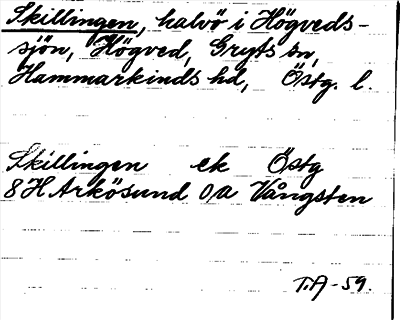 Skillingen, halvö i Högveds-
sjön, Högved, Gryts sn,
Hammarkinds hd, Östg. l.
Skillingen ek Östg
8H Arkösund O/a Vångsten
T.A-59.